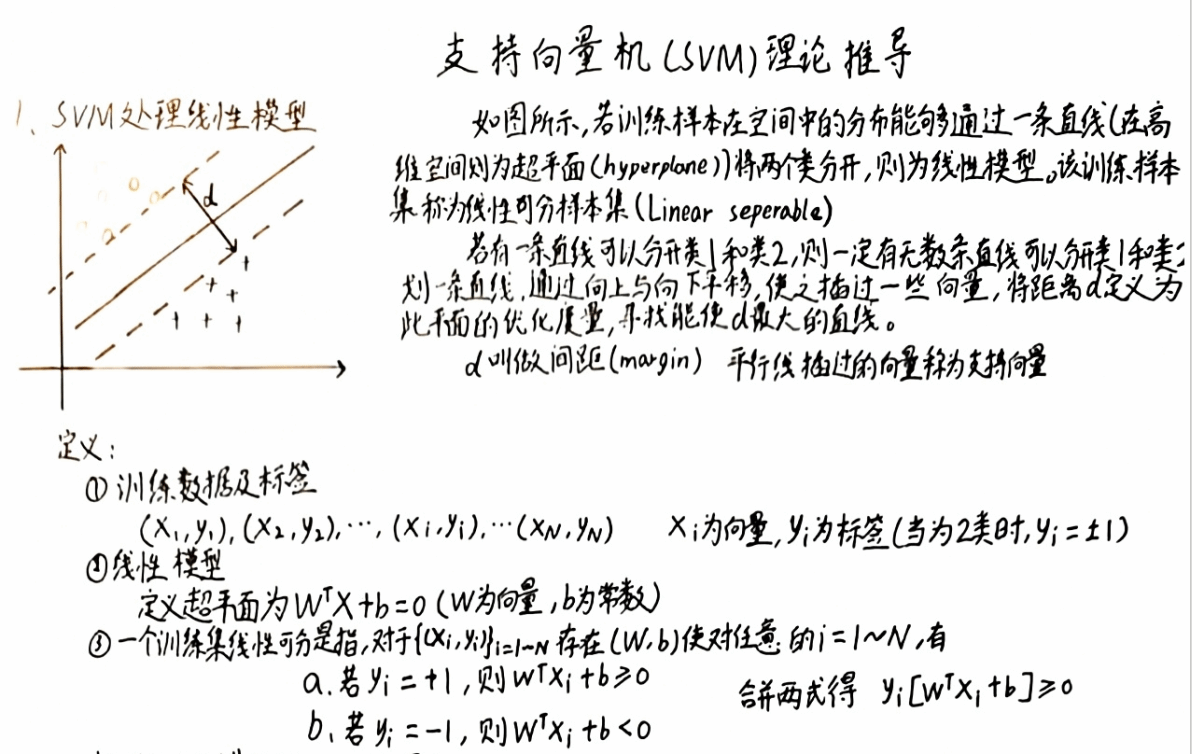 支持向量机(SVM)理论推导
1、SVM处理线性模型
d
如图所示,若训练样本在空间中的分布能够通过一条直线(在高
维空间则为超平面(hyperplane))将两个类分开,则为线性模型。该训练样本
集称为线性可分样本集(Linear seperable)
若有一条直线可以分开类1和类2,则一定有无数条直线可以分开类1和类2
划一条直线,通过向上与向下平移,使之插过一些向量,将距离d定义为
此平面的优化度量,寻找能使d最大的直线。
d叫做间距(margin) 平行线插过的向量称为支持向量
定义:
① 训练数据及标签
(X₁,y₁),(X₂,y₂),…,(Xi,yi),…(XN,yN) Xi为向量,yi为标签(当为2类时,yi=±1)
②线性模型
定义超平面为WᵀX+b=0(W为向量,b为常数)
③一个训练集线性可分是指,对于{(Xi,yi)}i=1~N存在(W,b)使对任意的i=1~N,有
a.若yi=+1,则WᵀXi+b≥0
合并两式得 yi[WᵀXi+b]≥0
b.若yi=-1,则WᵀXi+b<0